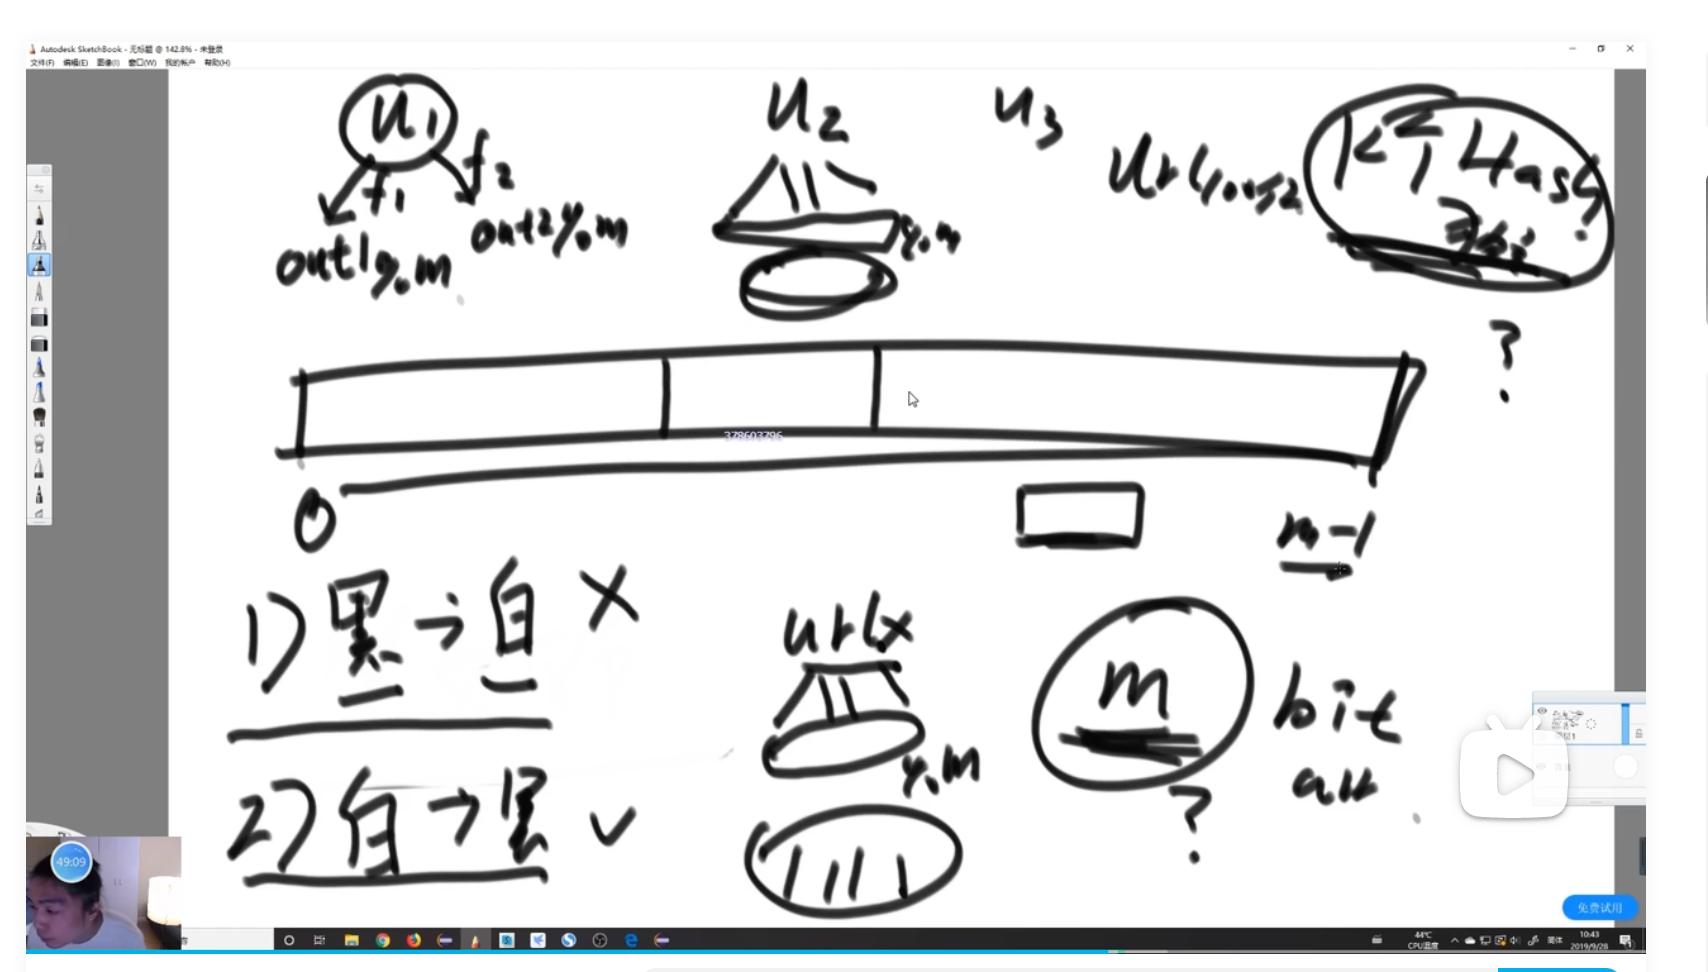 Autodesk SketchBook - 无标题 @ 142.8% - 未登录
文件(F) 编辑(E) 图像(I) 窗口(W) 我的帐户 帮助(H)
u1 u2 u3
f1 f2
out1%m out2%m %m
url100亿
K个Hash
?
378603796
0 m-1
1) 黑→白 ×
urlx
%m
m bit
?
2) 白→黑 ✓
49:09
免费试用
44℃
CPU温度
简体
10:43
2019/9/28